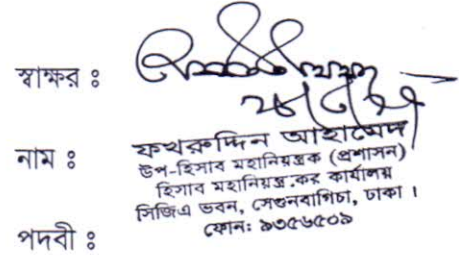 স্বাক্ষর ঃ
নাম ঃ
ফখরুদ্দিন আহামেদ
উপ-হিসাব মহানিয়ন্ত্রক (প্রশাসন)
হিসাব মহানিয়ন্ত্রকের কার্যালয়
সিজিএ ভবন, সেগুনবাগিচা, ঢাকা ।
ফোন: ৯৩৫৬৫০৯
পদবী ঃ